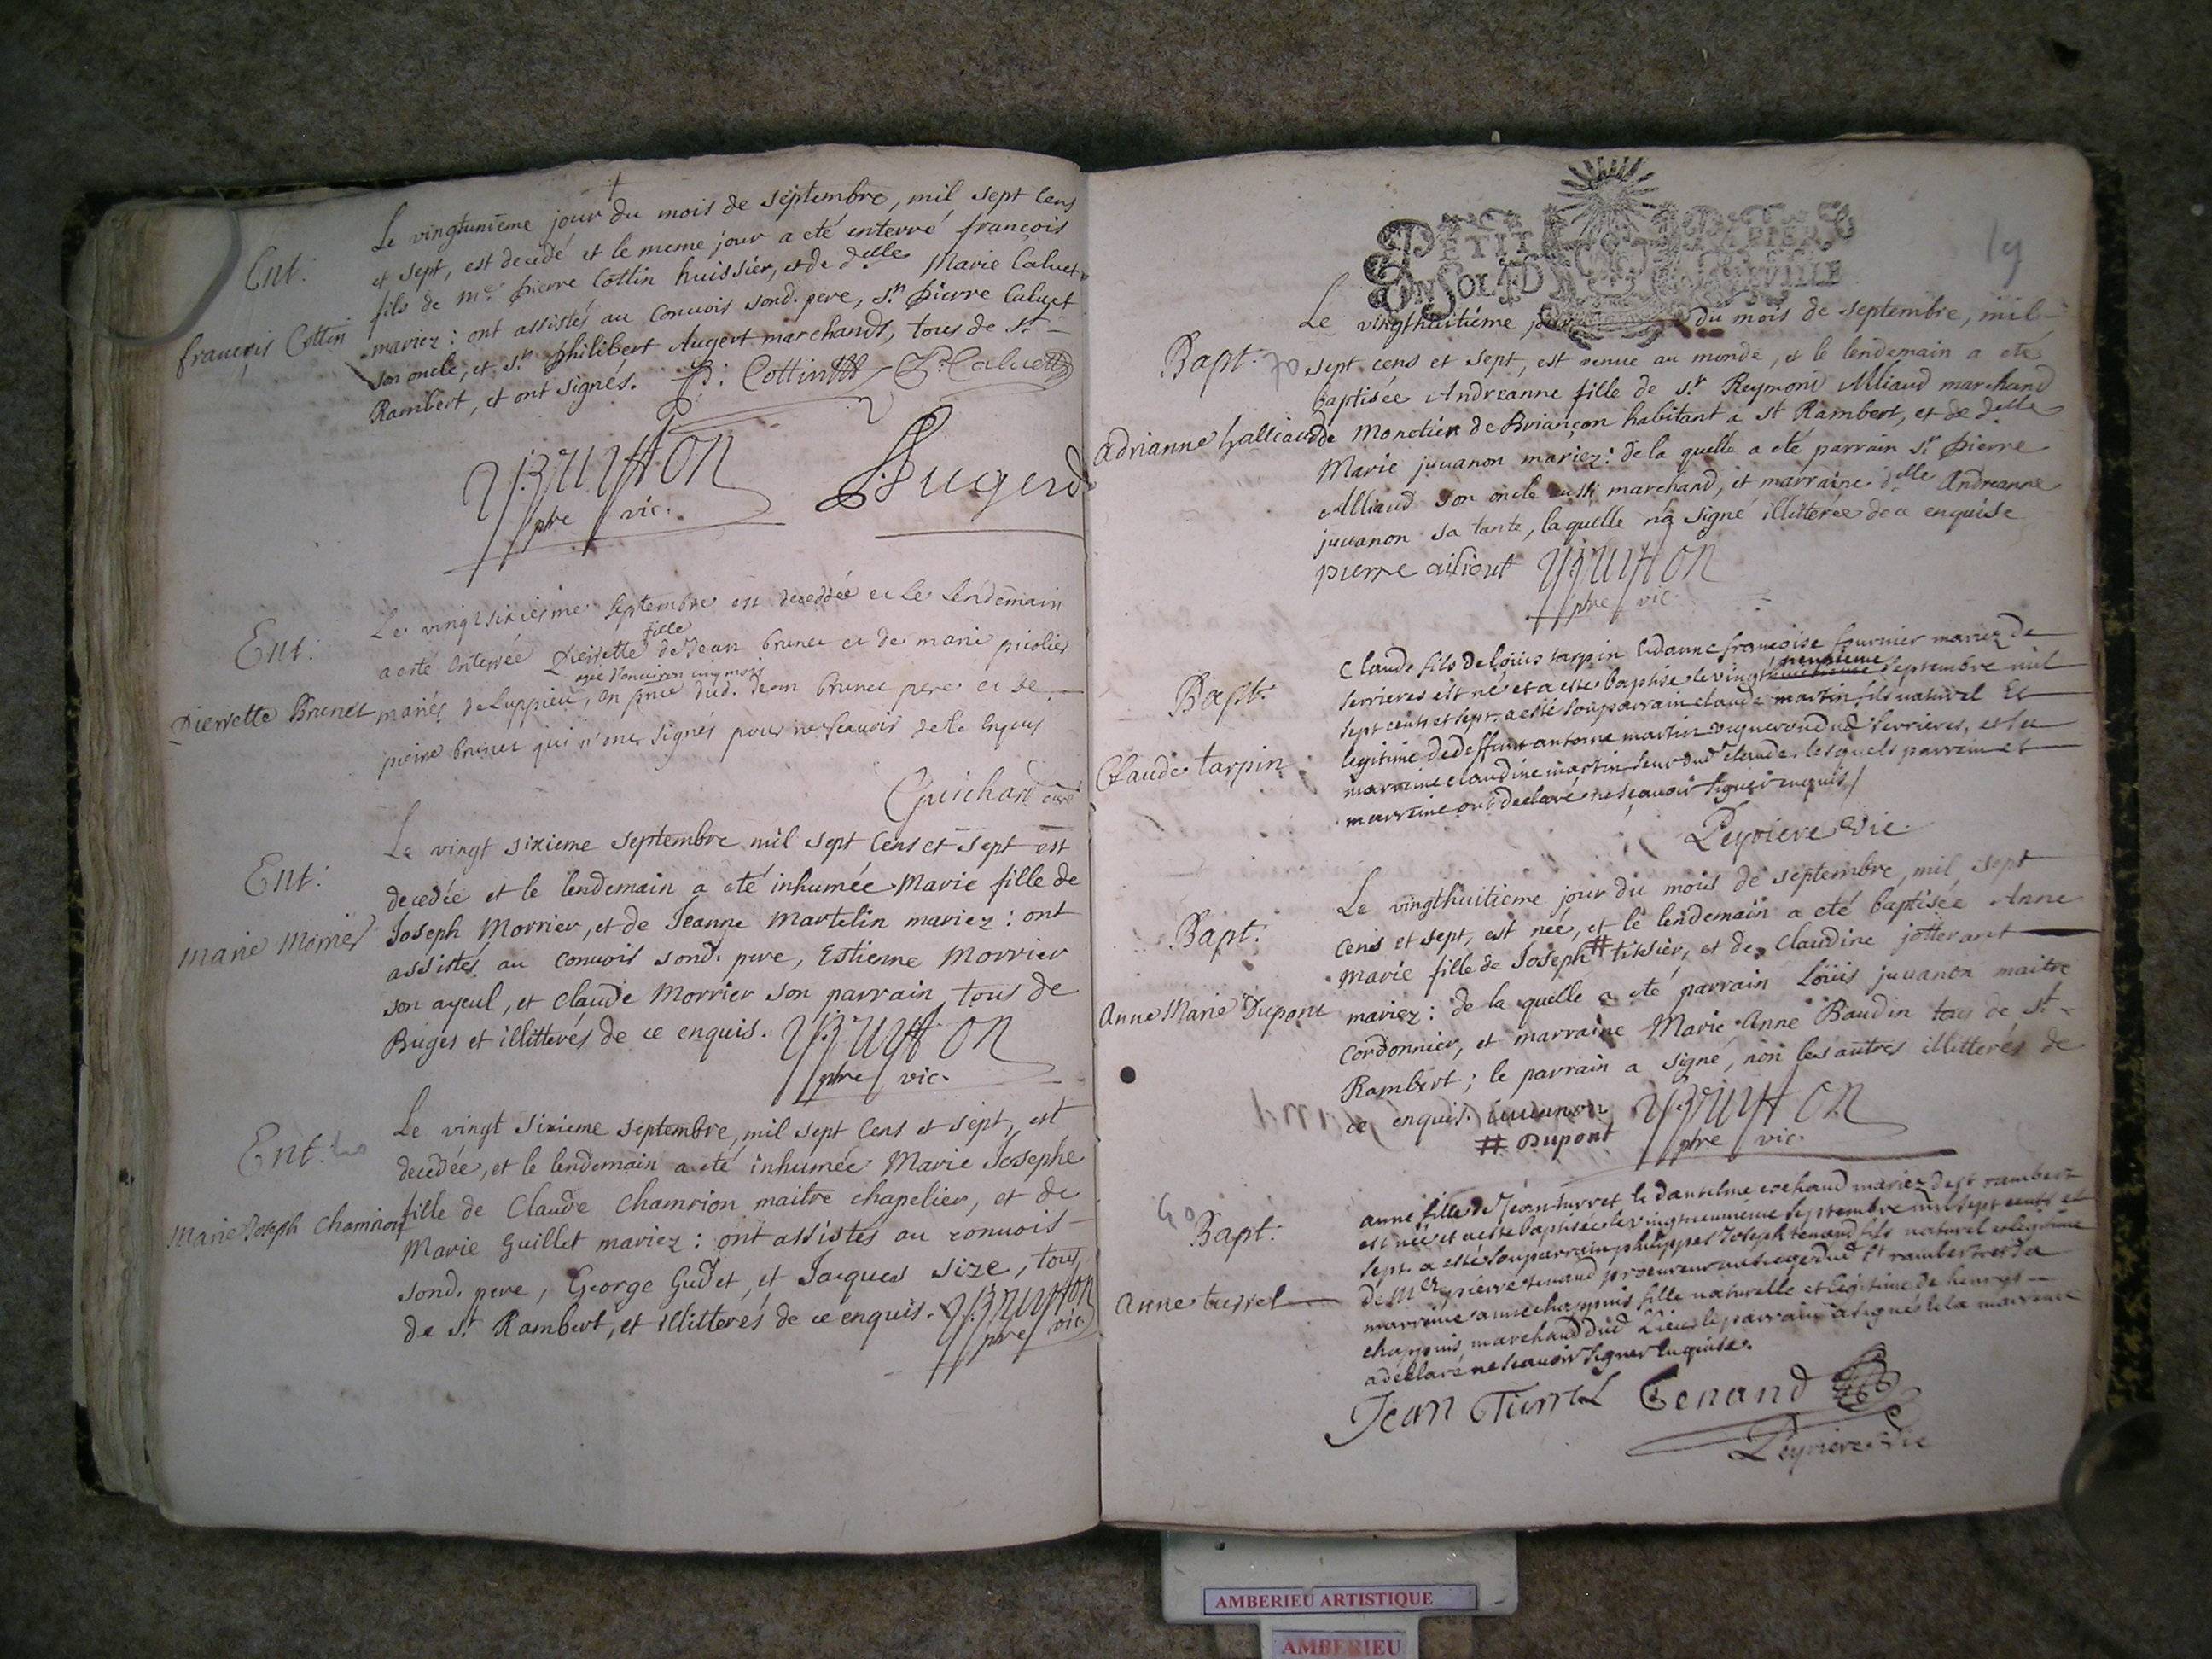 Ent.
françois Cottin
Le vingtuniéme jour du mois de septembre, mil sept cens
et sept, est decedé et le meme jour a eté enterré françois
fils de me. pierre Cottin huissier, et de delle Marie Caluet
mariez: ont assistés au conuois sond. pere, sr. pierre Caluet
son oncle, et sr. philibert Augert marchands, tous de st.
Rambert, et ont signés. P: Cottin P. Caluet
pbre vic. Augerd
Ent.
Pierrette Brunet
Le vingt sixiesme septembre est deceddée et le lendemain
fille
a esté enterrée Pierrette de Jean brunet et de marie
agée d'enuiron cinq mois
mariés de Luppieu, en pnce dud. Jean brunet pere et de
pierre brunet qui n'ont signés pour ne scauoir de ce enquis
Guichard curé
Ent.
Marie Morrier
Le vingt sixieme septembre mil sept cens et sept est
decedée et le lendemain a eté inhumée Marie fille de
Joseph Morrier, et de Jeanne Martelin mariez: ont
assistés au conuois sond. pere, Estienne Morrier
son ayeul, et Claude Morrier son parrain tous de
Buges et illitterés de ce enquis.
pbre vic.
Ent.
Marie Joseph Chamrion
Le vingt sixieme septembre, mil sept cens et sept, est
decedée, et le lendemain a eté inhumée Marie Josephe
fille de Claude Chamrion maitre chapelier, et de
Marie Guillet mariez: ont assistés au conuois
sond. pere, George Gudet, et Jacques Size, tous
de st. Rambert, et illitterés de ce enquis.
pbre vic.
PETIT PAPIER
UN SOL 4 D
19
Bapt.
Adrianne halliaud
Le vingthuitiéme jour du mois de septembre, mil
sept cens et sept, est venue au monde, et le lendemain a eté
baptisée Andreanne fille de sr. Reymond Alliaud marchand
de Monetier de Briançon habitant a st Rambert, et de delle
Marie juuanon mariez: de la quelle a eté parrain sr. pierre
Alliaud son oncle aussi marchand, et marraine delle Andreanne
juuanon sa tante, laquelle n'a signé illitterée de ce enquise
pierre
pbre vic.
Bapt.
Claude tarpin
Claude fils de loüis tarpin et danne françoise fournier mariez de
neufieme
serrieres est né et a esté baptisé le vingt septembre mil
sept cents et sept. a esté son parrain claude martin fils naturel et
legitime de deffunt antoine martin vigneron dud serrieres, et sa
marraine claudine martin seur dud claude. lesquels parrain et
marraine ont declaré ne sçauoir signer enquis
Peyriere vic.
Bapt.
Anne Marie Dupont
Le vingthuitieme jour du mois de septembre, mil sept
cens et sept, est née, et le lendemain a eté baptisée Anne
Marie fille de Joseph # tissier, et de Claudine jotterant
mariez: de la quelle a eté parrain Loüis juuanon maitre
cordonnier, et marraine Marie Anne Baudin tous de st.
Rambert; le parrain a signé, non les autres illitterés de
ce enquis. iuuanon
# Dupont pbre vic.
40
Bapt.
Anne turrel
anne fille de Jean turret et danthelme cochaud mariez de st rambert
est née et a esté baptisée le vingtneufuieme septembre mil sept cents et
sept. a esté son parrain philippes Joseph tenand fils naturel et legitime
de Me pierre tenand procureur au siege dud st rambert et sa
marraine anne chappuis fille naturelle et legitime de henrys
chappuis marchand dud lieu, le parrain a signé et la marraine
a declaré ne scauoir signer enquise.
Jean Turrel Tenand
Peyriere vic
AMBERIEU ARTISTIQUE
AMBERIEU